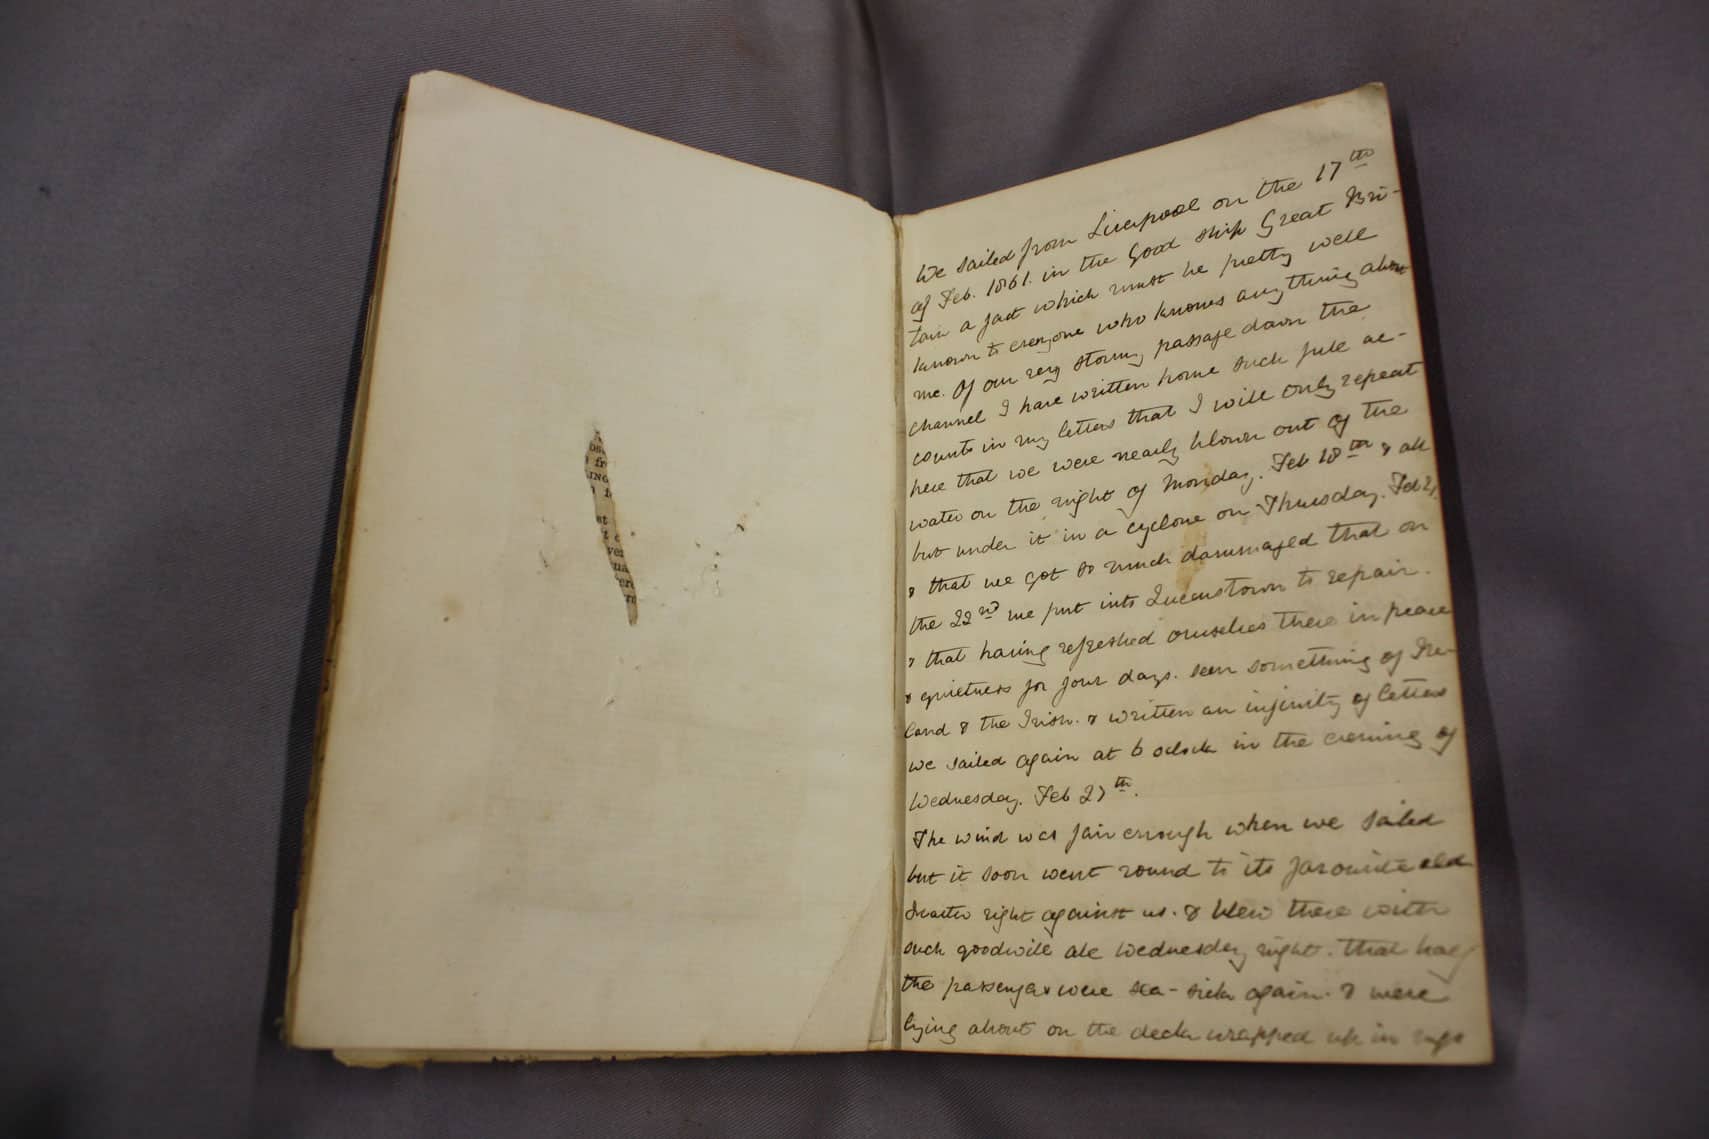 bs
fr
ING
st
t c
ver
na
ere
We sailed from Liverpool on the 17th
of Feb. 1861. in the Good ship Great Bri-
tain a fact which must be pretty well
known to everyone who knows anything about
me. Of our very stormy passage down the
channel I have written home such full ac-
counts in my letters that I will only repeat
here that we were nearly blown out of the
water on the night of Monday. Feb 18th & all
but under it in a cyclone on Thursday. Feb 21,
& that we got so much dammaged that on
the 22nd we put into Queenstown to repair.
& that having refreshed ourselves there in peace
& quietness for four days. seen something of Ire-
land & the Irish. & written an infinity of letters
we sailed again at 6 oclock in the evening of
Wednesday. Feb 27th.
The wind was fair enough when we sailed
but it soon went round to its favourite old
right against us. & blew there with
such goodwill all Wednesday night. that half
the passengers were sea-sick again. & were
lying about on the deck wrapped up in rugs